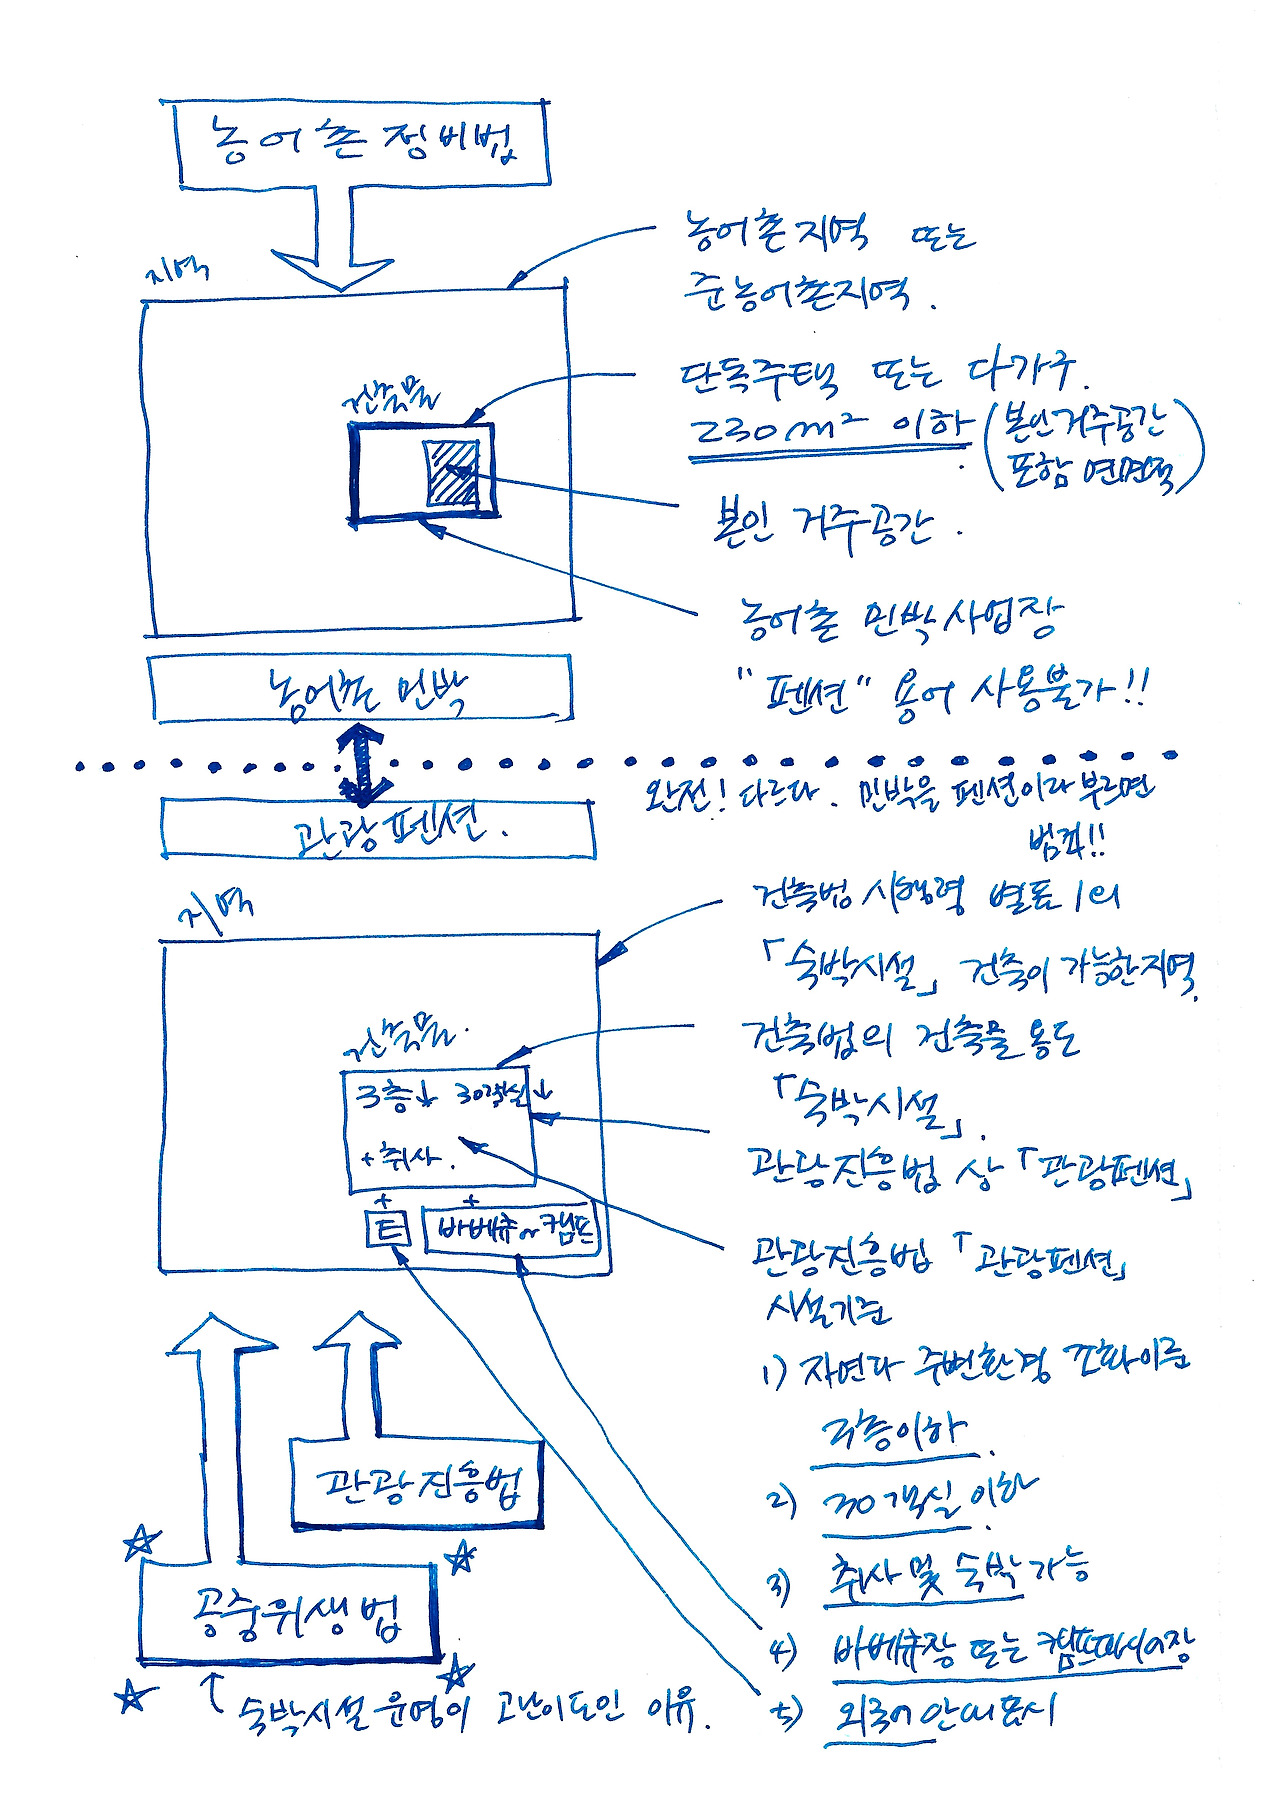 농어촌정비법
지역
농어촌지역 또는
준농어촌지역.
단독주택 또는 다가구.
230m² 이하 (본인거주공간
포함 연면적)
건축물
본인 거주공간.
농어촌 민박사업장
"펜션" 용어 사용불가!!
농어촌 민박
완전! 다르다. 민박을 펜션이라 부르면
범죄!!
관광펜션.
지역
건축법 시행령 별표1의
「숙박시설」 건축이 가능한지역.
건축물.
건축법의 건축물 용도
「숙박시설」.
3층↓ 30객실↓
+취사.
관광진흥법 상 「관광펜션」
+ +
E 바베큐 or 캠프
관광진흥법 「관광펜션」
시설기준
1) 자연과 주변환경 조화이룬
3층이하.
2) 30객실 이하.
3) 취사 및 숙박가능
4) 바베큐장 또는 캠프파이어장
5) 외국어 안내표시
관광진흥법
공중위생법
숙박시설 운영이 고난이도인 이유.